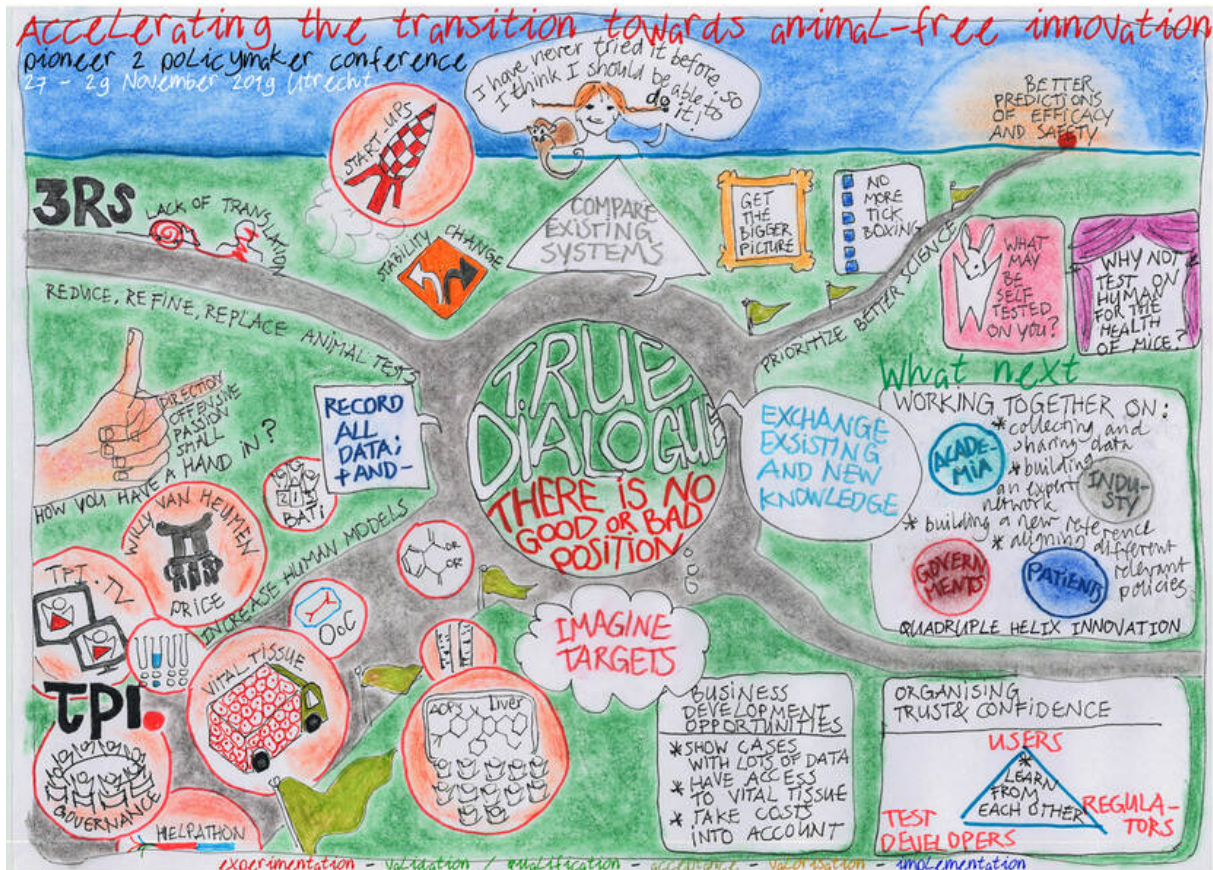 Accelerating the transition towards animal-free innovation
pioneer 2 policymaker conference
27 - 29 November 2019 Utrecht
I have never tried it before, so
I think I should be able to
do it!
BETTER
PREDICTIONS
OF EFFICACY
AND SAFETY
START-UPS
3RS
LACK OF TRANSLATION
STABILITY CHANGE
COMPARE
EXISTING
SYSTEMS
GET
THE
BIGGER
PICTURE
NO
MORE
TICK
BOXING
PRIORITIZE BETTER SCIENCE
WHAT
MAY
BE
SELF
TESTED
ON YOU?
WHY NOT
TEST ON
HUMAN
FOR THE
HEALTH
OF MICE?
REDUCE, REFINE, REPLACE ANIMAL TESTS
DIRECTION
OFFENSIVE
PASSION
SMALL
HOW YOU HAVE A HAND IN?
RECORD
ALL
DATA;
+ AND -
TRUE
DIALOGUE
THERE IS NO
GOOD OR BAD
POSITION
EXCHANGE
EXSISTING
AND NEW
KNOWLEDGE
What next
WORKING TOGETHER ON:
* collecting and
sharing data
* building
an expert
network
* building a new reference
* aligning different
relevant
policies
ACADE-
MIA
INDU-
STY
GOVERN
MENTS
PATIENTS
QUADRUPLE HELIX INNOVATION
BATi
WILLY VAN HEUMEN
PRICE
TPI.TV
INCREASE HUMAN MODELS
OR
OR
OoC
VITAL TISSUE
TPI.
GOVERNANCE
HELPATHON
AOPs
Liver
IMAGINE
TARGETS
BUSINESS
DEVELOPMENT
OPPORTUNITIES
* SHOW CASES
WITH LOTS OF DATA
* HAVE ACCESS
TO VITAL TISSUE
* TAKE COSTS
INTO ACCOUNT
ORGANISING
TRUST & CONFIDENCE
USERS
* LEARN
FROM
EACH OTHER
TEST
DEVELOPERS
REGULA-
TORS
experimentation - validation / qualification - acceptance - valorisation - implementation